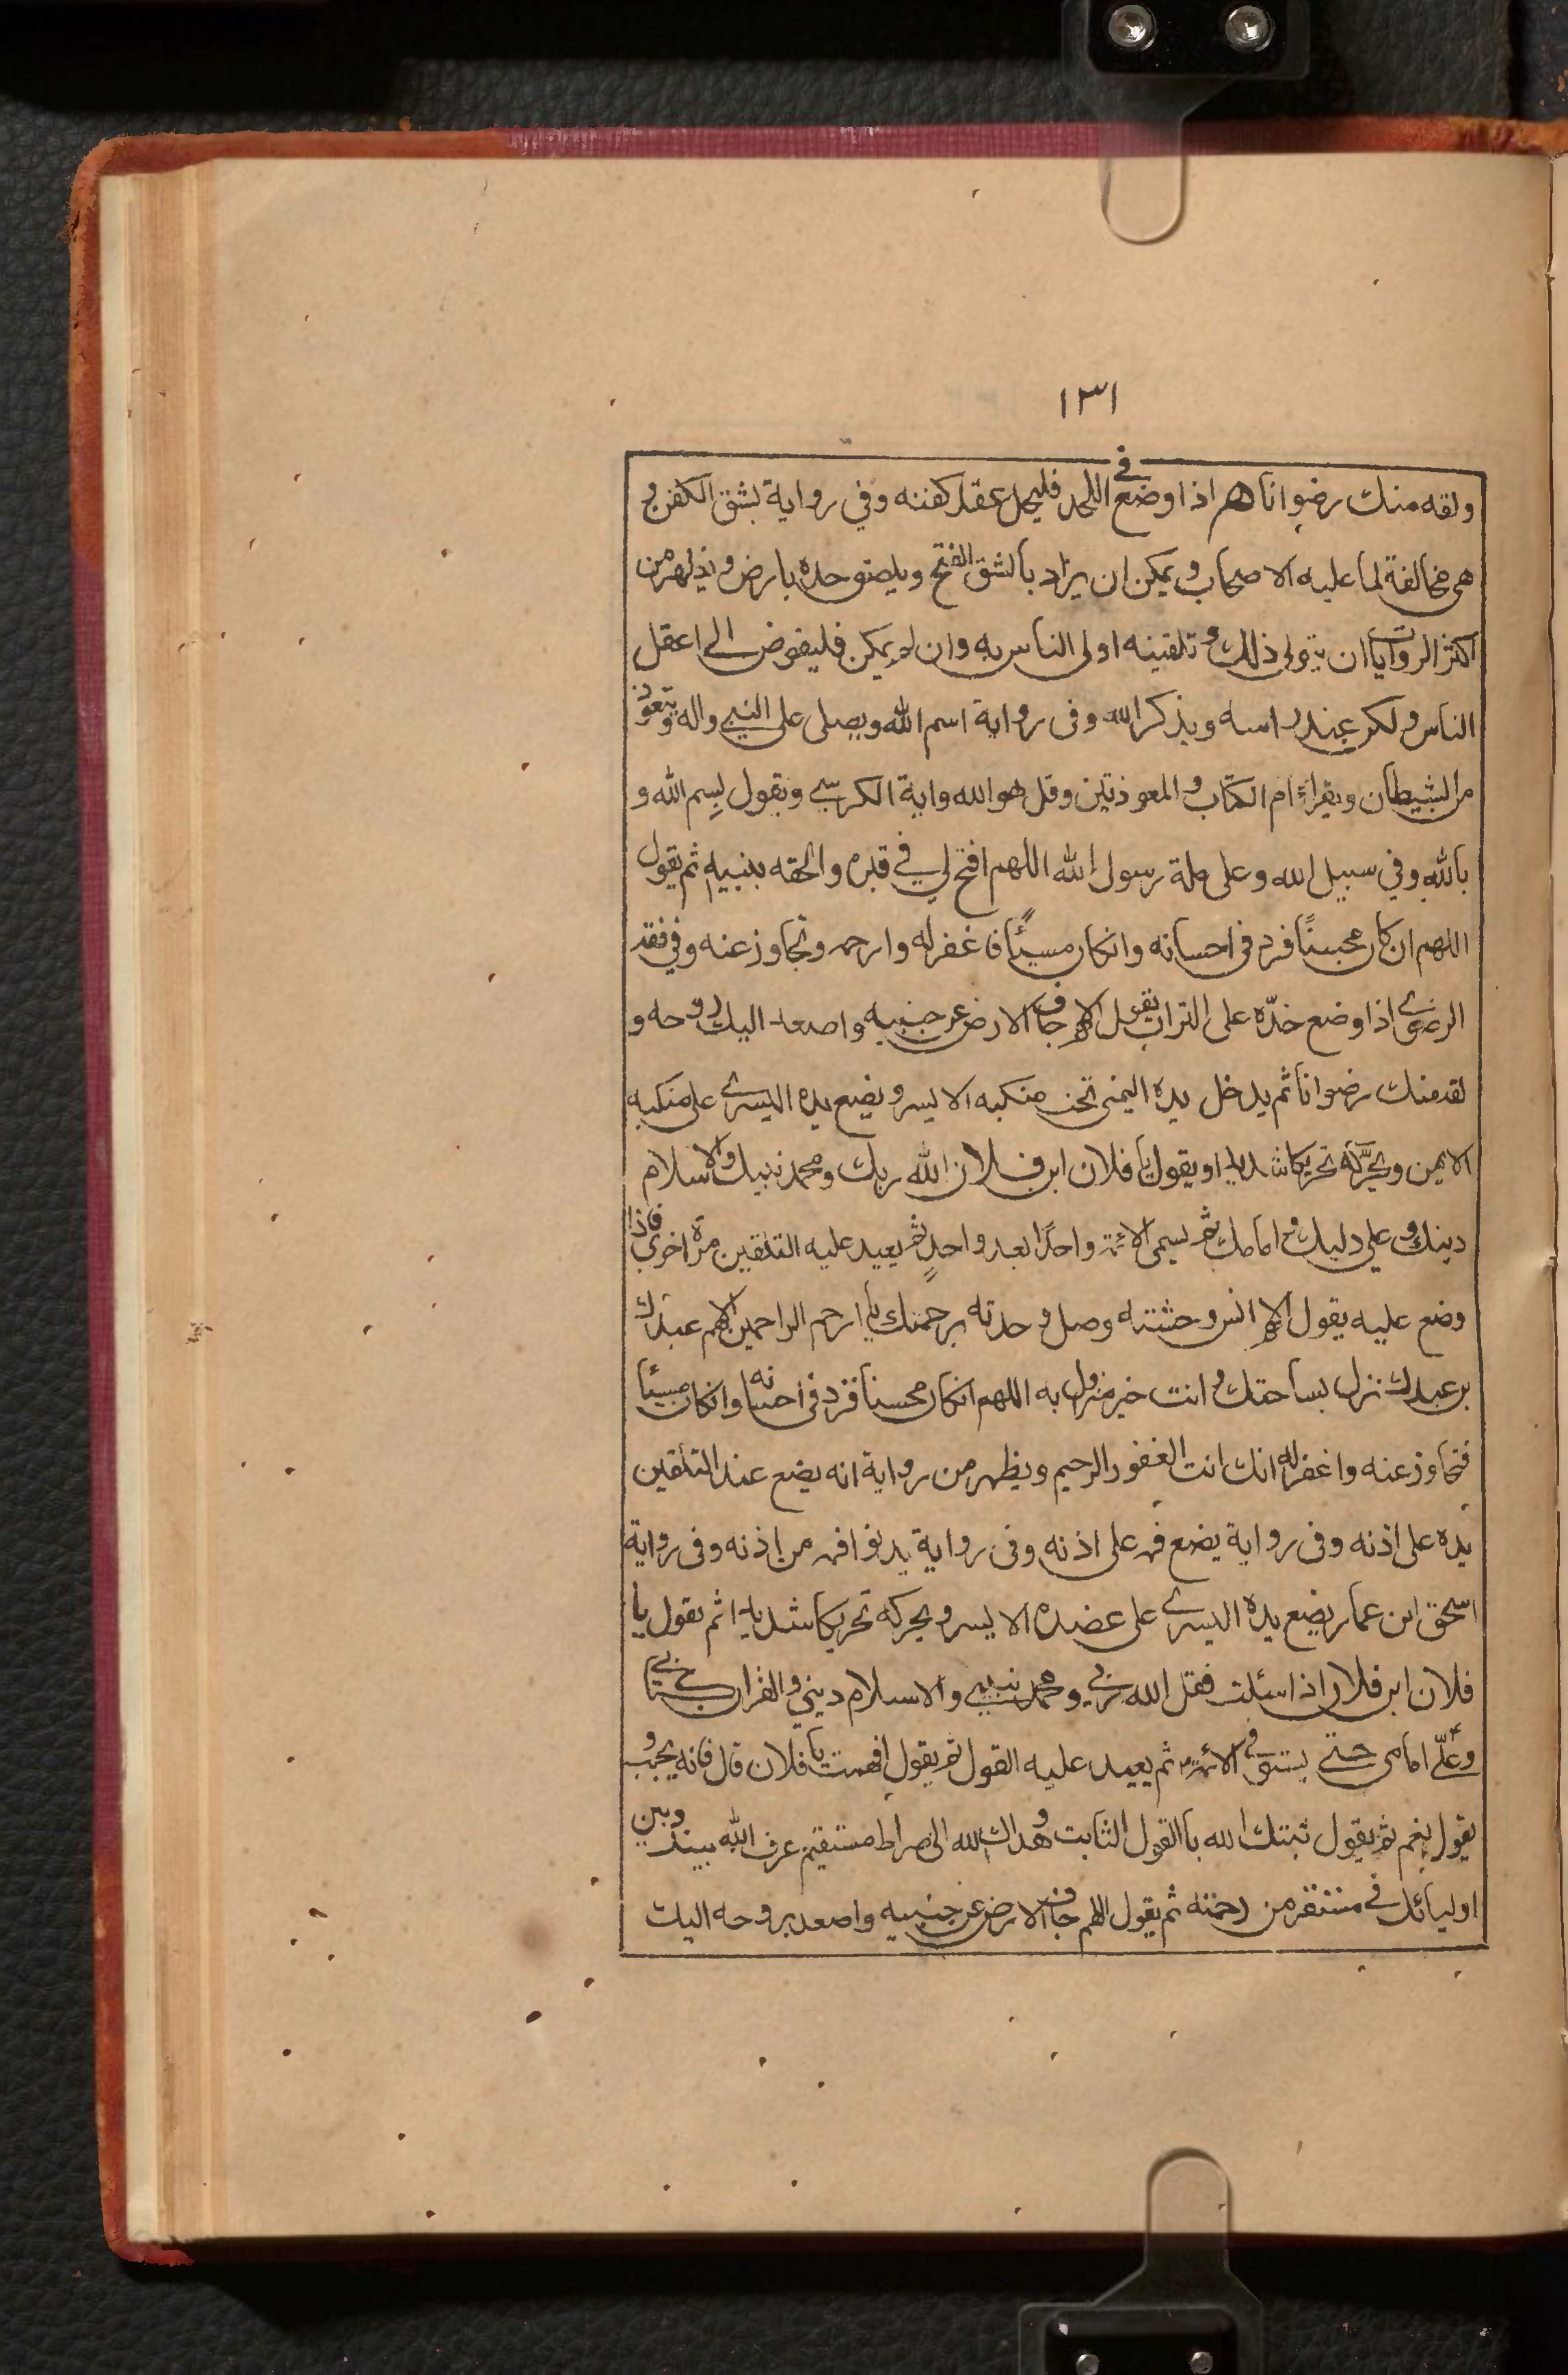 ١٣١
ولقه منك رضوانا هم اذا وضع في اللحد فليحل عقد كفنه وفي رواية يشق الكفن و
هى مخالفة لما عليه الاصحاب ويمكن ان يراد بالشق الفتح ويلصق خده بارض ويظهر من
اكثر الروايات ان يتولى ذلك و تلقينه اولى الناس به وان لم يمكن فليفوض الى اعقل
الناس ولكر عند راسه ويذكر الله وفى رواية اسم الله ويصلى على النبي واله ويتعوذ
من الشيطان ويقراء ام الكتاب و المعوذتين وقل هو الله واية الكرسي ويقول بسم الله و
بالله وفي سبيل الله وعلى ملة رسول الله اللهم افتح لي في قبره والحقه بنبيه ثم يقول
اللهم ان كان محسنًا فزد فى احسانه وانكان مسيئًا فاغفر له وارحمه وتجاوز عنه وفي فقه
الرضوي اذا وضع خدّه على التراب يقول اللهم جاف الارض عن جنبيه واصعد اليك روحه و
لقه منك رضوانا ثم يدخل يده اليمنى تحت منكبه الايسر ويضع يده اليسرے على منكبه
الايمن ويحرّكه تحريكا شديدا ويقول يا فلان ابن فلان الله ربك ومحمد نبيك والاسلام
دينك وعلي وليك و امامك ثم يسمى الائمة واحدًا بعد واحدٍ ثم يعيد عليه التلقين مرة اخرى فاذا
وضع عليه يقول اللهم انس وحشته وصل وحدته برحمتك يا ارحم الراحمين اللهم عبدك
بن عبدك نزل بساحتك وانت خير منزول به اللهم انكان محسنا فزد فى احسانه وانكان مسيئا
فتجاوز عنه واغفر له انك انت الغفور الرحيم ويظهر من رواية انه يضع عند التلقين
يده على اذنه وفى رواية يضع فمه على اذنه وفى رواية يدنو افمه من اذنه وفى رواية
اسحق ابن عمار يضع يده اليسرے على عضده الايسر ويحركه تحريكا شديدا ثم يقول يا
فلان ابن فلان اذا سئلت فقل الله ربي ومحمد نبيي والاسلام ديني والقران كتابي
وعلّي امامى حتى يستوفى الائمة ثم يعيد عليه القول ثم يقول افهمت يا فلان قال فانه يجيب و
يقول نعم ثم يقول ثبتك الله باالقول الثابت وهداك الله الى صراط مستقيم عرف الله بينك وبين
اوليائك في مستقر من رحمته ثم يقول اللهم جاف الارض عن جنبيه واصعد بروحه اليك